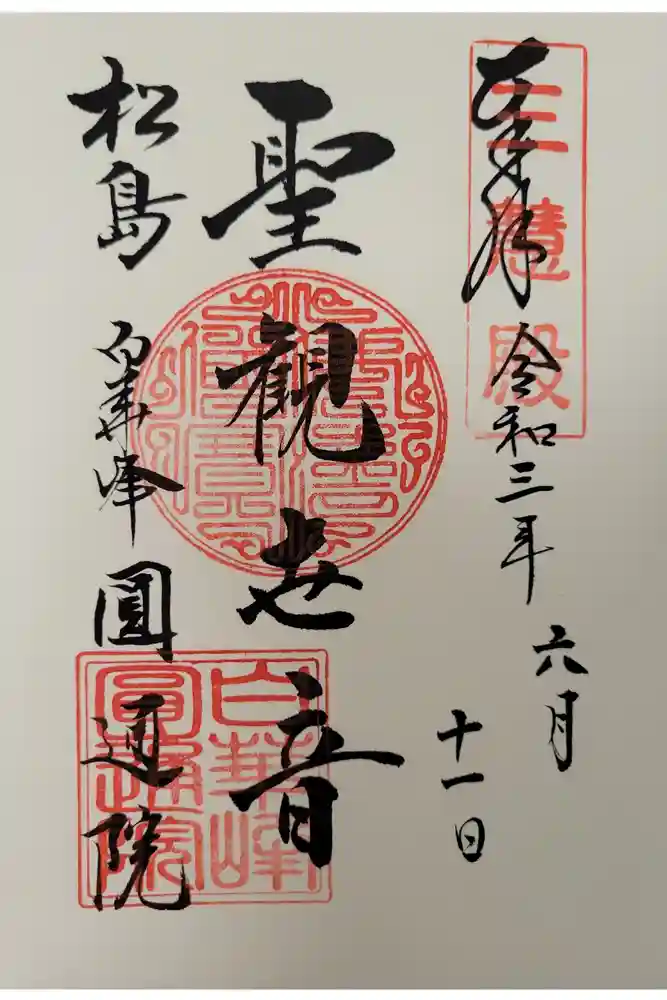 奉拝
三慧殿
令和三年
六月
十一日
聖観世音
松島 白華峰 圓通院
白華峰
圓通院